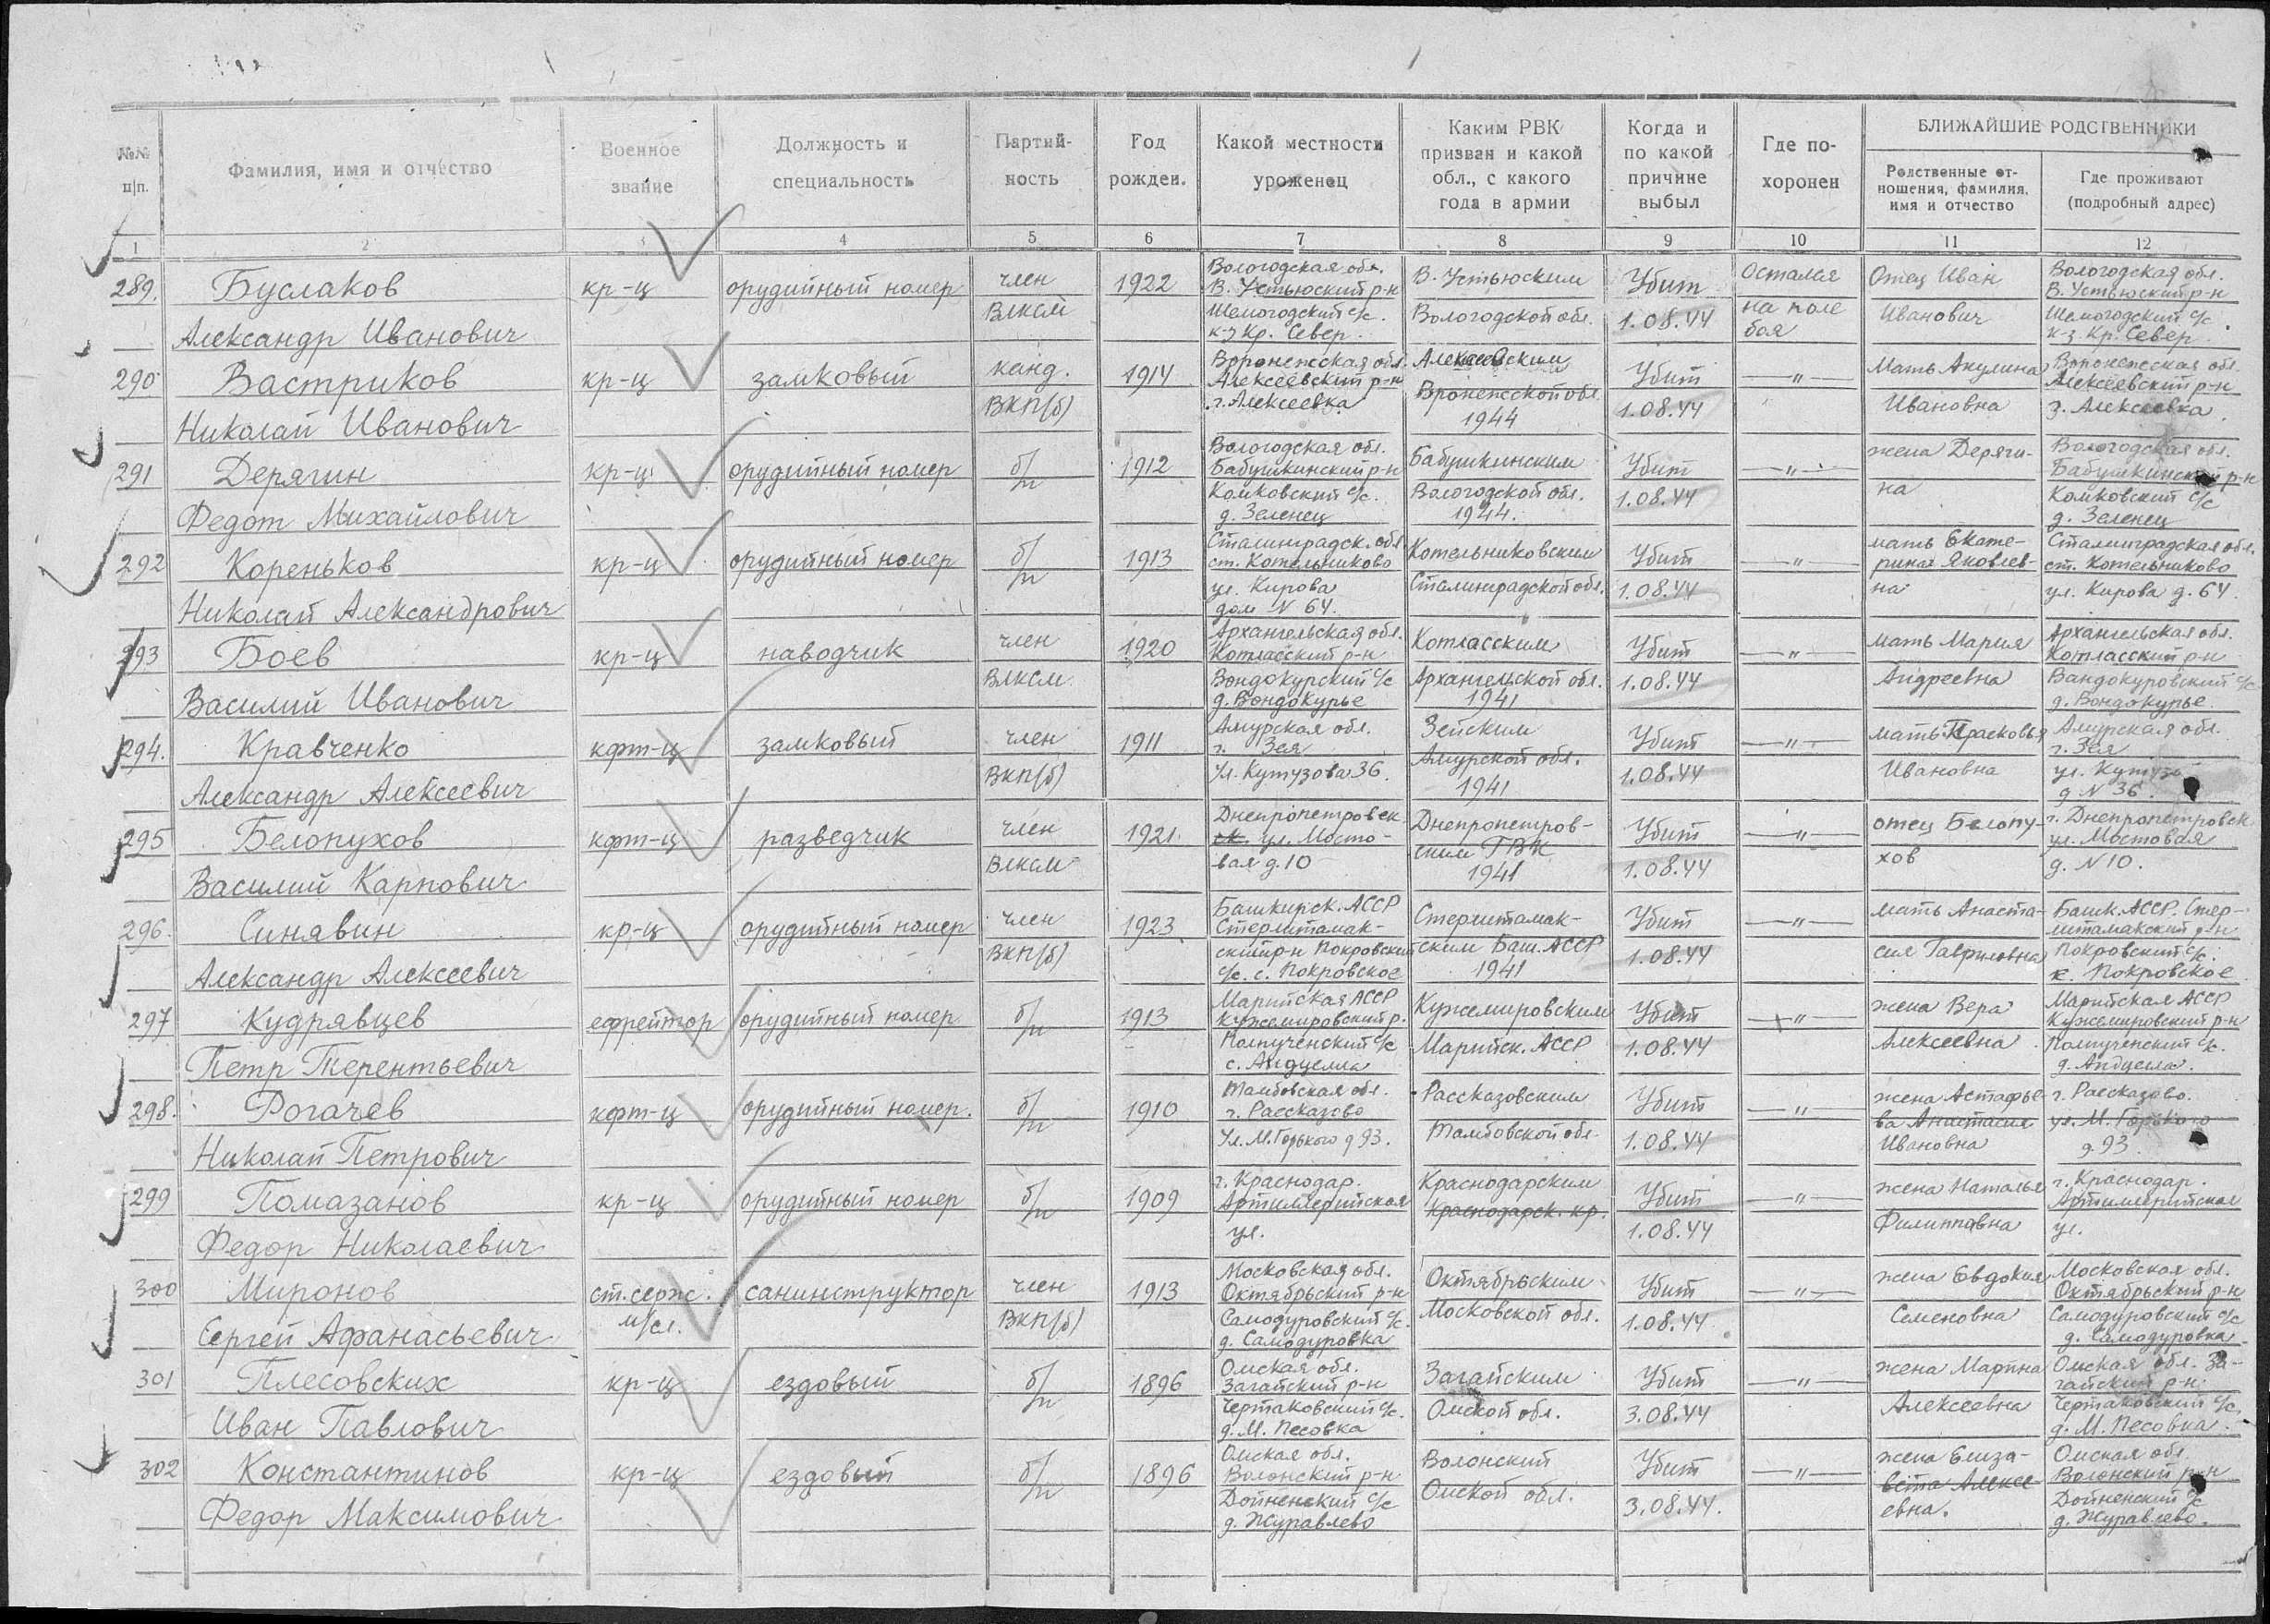 №№ п/п.
Фамилия, имя и отчество
Военное звание
Должность и специальность
Партий-ность
Год рожден.
Какой местности уроженец
Каким РВК призван и какой обл., с какого года в армии
Когда и по какой причине выбыл
Где по-хоронен
БЛИЖАЙШИЕ РОДСТВЕННИКИ
Родственные от-ношения, фамилия, имя и отчество
Где проживают (подробный адрес)
1 2 3 4 5 6 7 8 9 10 11 12
289. Буслаков Александр Иванович
кр-ц
орудийный номер
член ВЛКСМ
1922
Вологодская обл. В. Устьюский р-н Шемогодский с/с. к-з Кр. Север.
В. Устьюским Вологодской обл.
Убит 1.08.44
Остался на поле боя
Отец Иван Иванович
Вологодская обл. В. Устьюский р-н Шемогодский с/с к-з. Кр. Север
290 Вастриков Николай Иванович
кр-ц
замковый
канд. ВКП(б)
1914
Воронежская обл. Алексеевский р-н г. Алексеевка
Алексеевским Вронежской обл. 1944
Убит 1.08.44
—"—
Мать Акулина Ивановна
Воронежская обл. Алексеевский р-н г. Алексеевка
291 Дерягин Федот Михайлович
кр-ц
орудийный номер
б/п
1912
Вологодская обл. Бабушкинский р-н Комковский с/с. д. Зеленец
Бабушкинским Вологодской обл. 1944.
Убит 1.08.44
—"—
жена Деряги-на
Вологодская обл. Бабушкинский р-н Комковский с/с д. Зеленец
292 Кореньков Николай Александрович
кр-ц
орудийный номер
б/п
1913
Сталинградск. обл. ст. Котельниково ул. Кирова дом N 64.
Котельниковским Сталинградской обл.
Убит 1.08.44
—"—
мать Екате-рина Яковлев-на
Сталинградская обл. ст. Котельниково ул. Кирова д. 64.
293 Боев Василий Иванович
кр-ц
наводчик
член ВЛКСМ
1920
Архангельская обл. Котласский р-н Вондокурский с/с д. Вондокурье
Котласским Архангельской обл. 1941
Убит 1.08.44
—"—
мать Мария Андреевна
Архангельская обл. Котласский р-н Вандокуровский с/с д. Вондокурье
294. Кравченко Александр Алексеевич
кфт-ц
замковый
член ВКП(б)
1911
Амурская обл. г. Зея Ул. Кутузова 36.
Зейским Амурской обл. 1941
Убит 1.08.44
—"—
мать Прасковья Ивановна
Амурская обл. г. Зея ул. д N 36.
295 Белопухов Василий Карпович
кфт-ц
разведчик
член ВЛКСМ
1921
Днепропетровск ул. Мосто-вая д. 10
Днепропетров-ским ГВК 1941
Убит 1.08.44
—"—
отец Белопу-хов
г. Днепропетровск ул. Мостовая д. N 10.
296. Синявин Александр Алексеевич
кр-ц
орудийный номер
член ВКП(б)
1923
Башкирск. АССР Стерлитамак-ский р-н Покровский с/с. с. Покровское
Стерлитамак-ским Баш. АССР 1941
Убит 1.08.44
—"—
мать Анаста-сия Гавриловна
Башк. АССР. Стер-литамакский р-н Покровский с/с. с. Покровское
297 Кудрявцев Петр Терентьевич
ефрейтор
орудийный номер
б/п
1913
Марийская АССР Кужемировский р.
Кужемировским Марийск. АССР
Убит 1.08.44
—"—
жена Вера Алексеевна
Марийская АССР Кужемировский р-н
298. Рогачев Николай Петрович
кфт-ц
орудийный номер.
б/п
1910
Тамбовская обл. г. Рассказово Ул. М. Горького д 93.
Рассказовским Тамбовской обл.
Убит 1.08.44
—"—
жена Астафье-ва Анастасия Ивановна
г. Рассказово. ул. М. Горького д. 93
299 Помазанов Федор Николаевич
кр-ц
орудийный номер
б/п
1909
г. Краснодар. Артиллерийская ул.
Краснодарским Краснодарск. кр.
Убит 1.08.44
—"—
жена Наталья Филипповна
г. Краснодар. Артиллерийская ул.
300 Миронов Сергей Афанасьевич
ст. серж. м/сл.
санинструктор
член ВКП(б)
1913
Московская обл. Октябрьский р-н Самодуровский с/с. д. Самодуровка
Октябрьским Московской обл.
Убит 1.08.44
—"—
жена Евдокия Семеновна
Московская обл. Октябрьский р-н Самодуровский с/с д. Самодуровка
301 Плесовских Иван Павлович
кр-ц
ездовый
б/п
1896
Омская обл. Загайский р-н Чертаковский с/с. д. М. Песовка
Загайским Омской обл.
Убит 3.08.44
—"—
жена Марина Алексеевна
Омская обл. За-гайский р-н. Чертаковский с/с. д. М. Песовка
302 Константинов Федор Максимович
кр-ц
ездовый
б/п
1896
Омская обл. Волонский р-н Дойненский с/с д. Журавлево
Волонский Омской обл.
Убит 3.08.44.
—"—
жена Елиза-вета Алексе-евна.
Омская обл. Волонский р-н Дойненский с/с д. Журавлево.